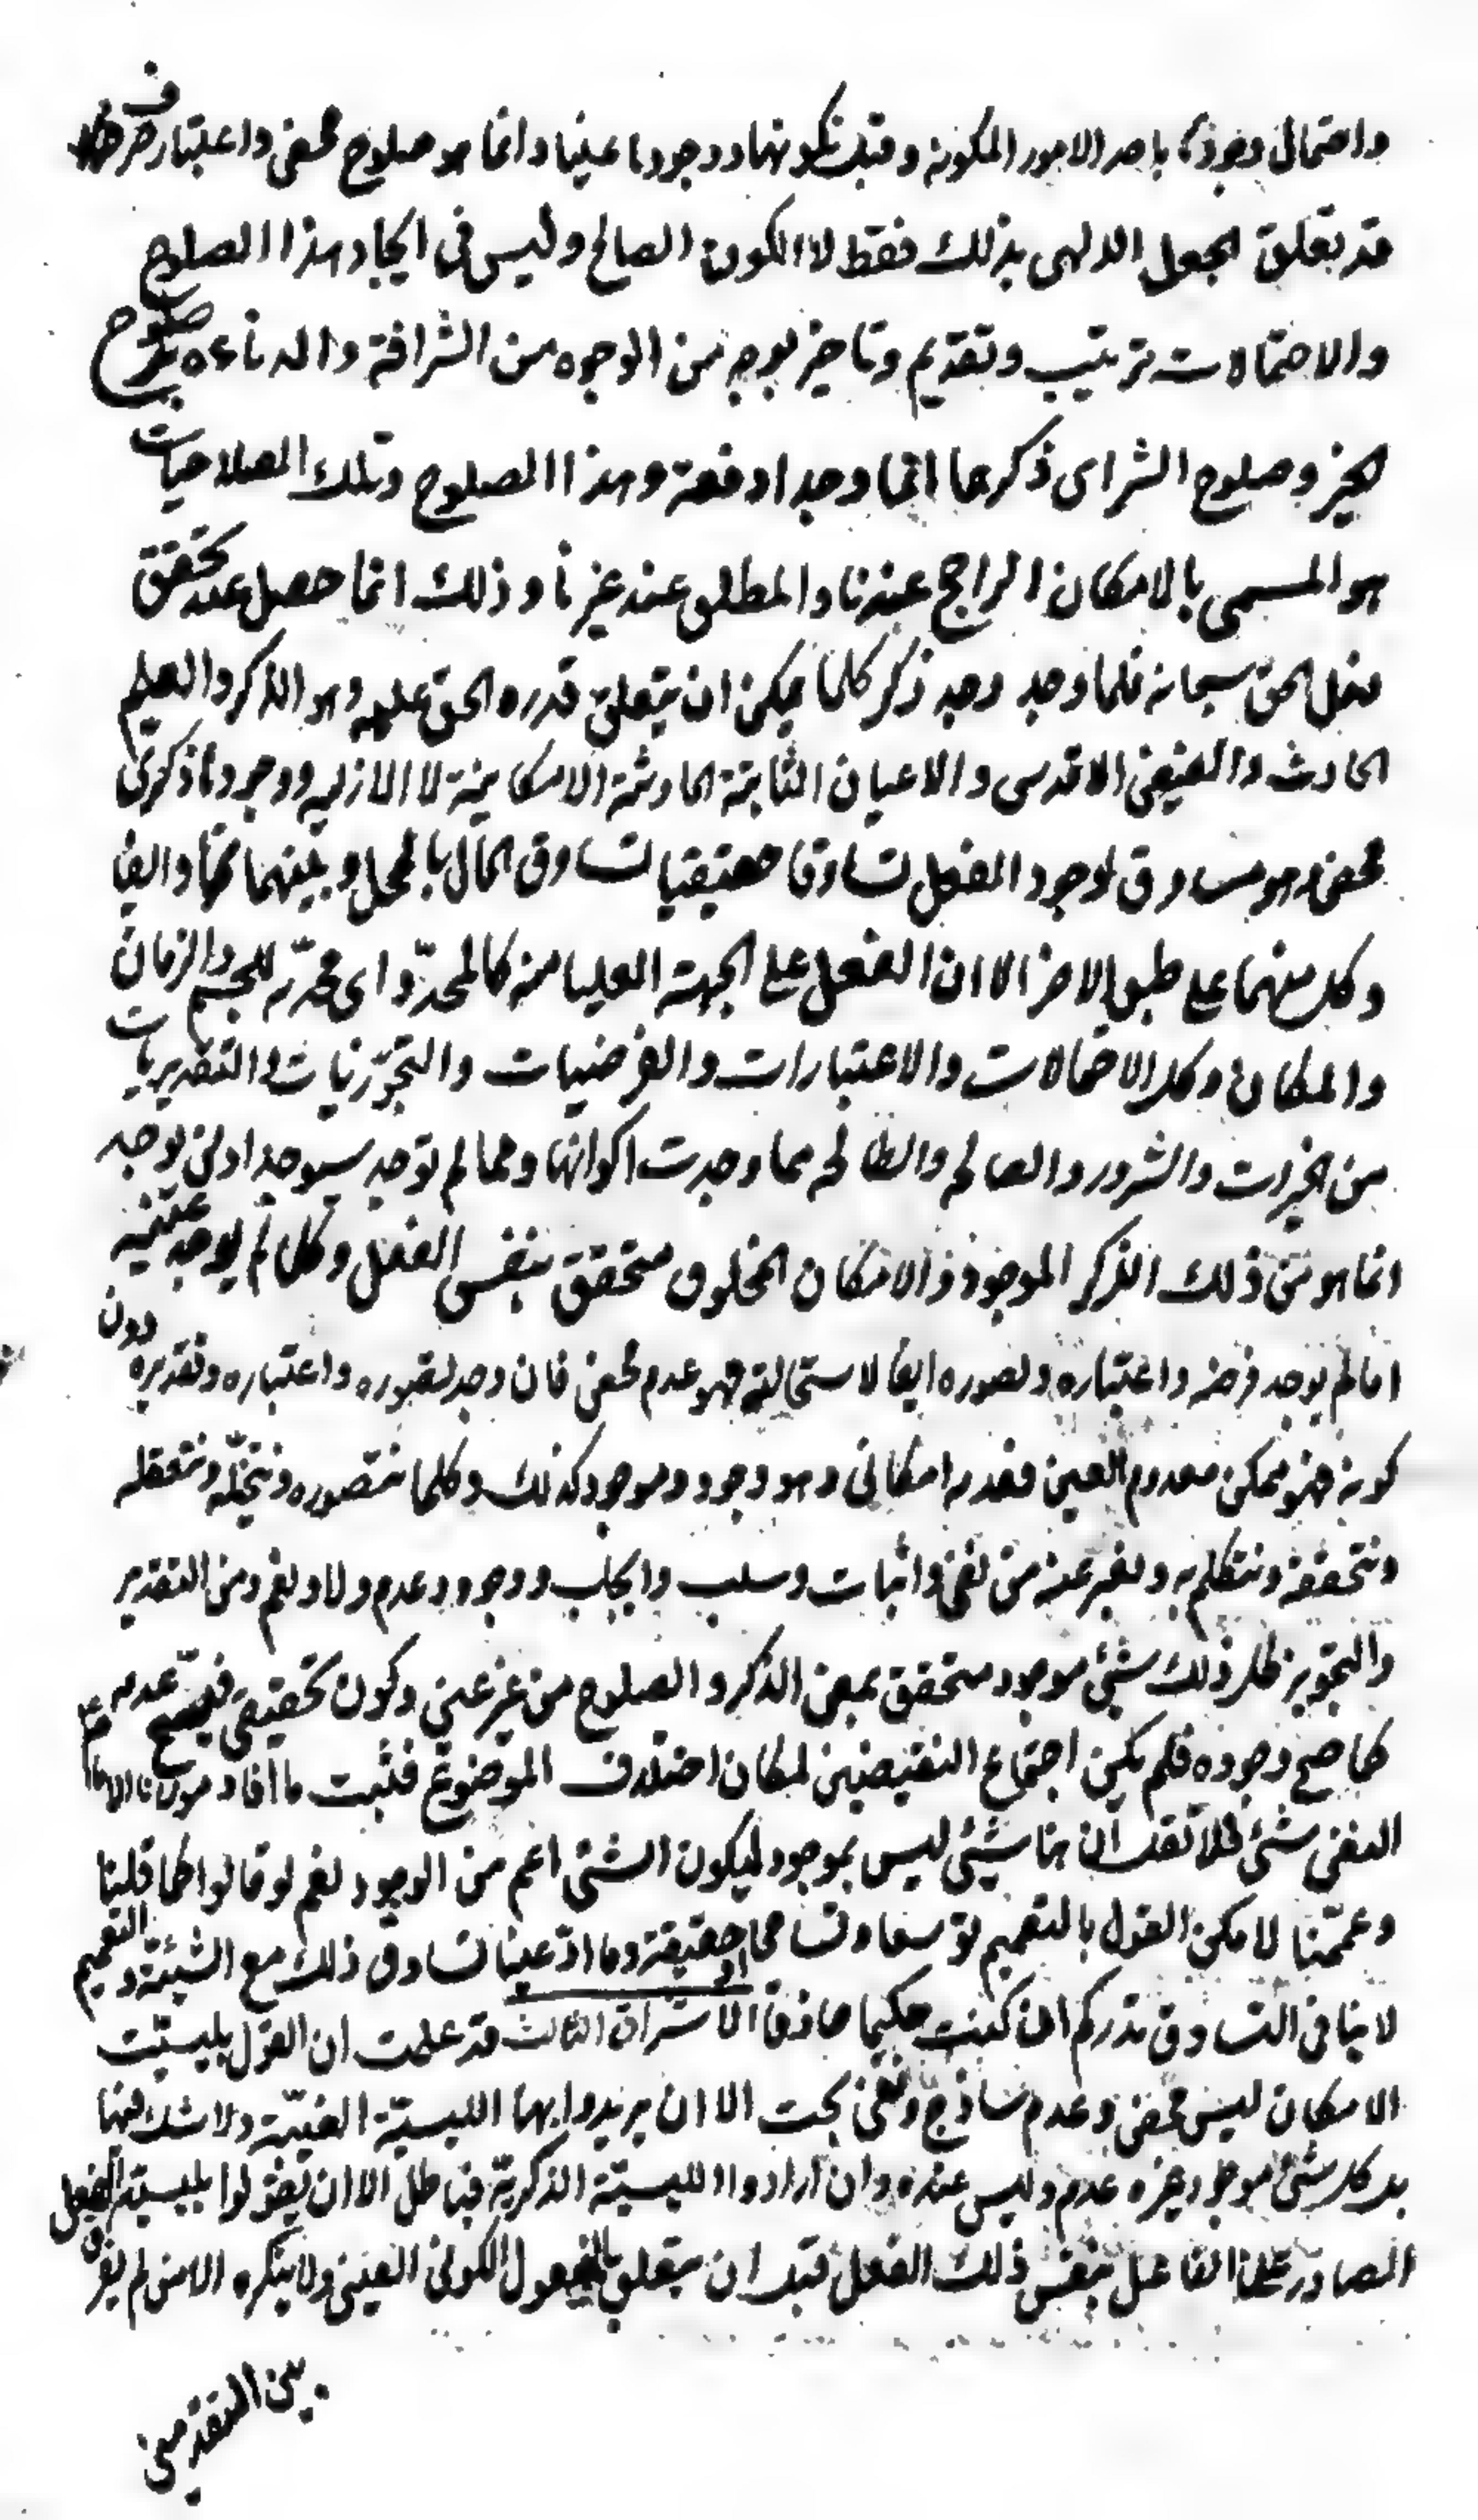 واحتمال وجود باحد الامور المكونة وقبل تكونها ووجودها عينا وانما هو صلوح محض واعتبار صرف
قد تعلق الجعل الالهي بذلك فقط لا الكون الصالح وليس في ايجاد هذا الصلوح
والاحتمالات ترتيب وتقديم وتاخير بوجه من الوجوه من الشرافة والدناءة صلوح
الخير وصلوح الشر اى ذكرهما انما وجدا دفعة وهذا الصلوح وتلك الصلاحيات
هو المسمى بالامكان الراجح عندنا والمطلق عند غيرنا وذلك انما حصل عند تحقق
فعل الحق سبحانه فلما وجد وجد ذكر كلما يمكن ان يتعلق قدرة الحق عليه وهو الذكر والعلم
الحادث والفيض الاقدس والاعيان الثابتة الحادثة الامكانية لا الازلية ووجودها ذكرى
محض وهو مساوق لوجود الفعل تساوقا حقيقيا تساوق الحال بالمحل وبينهما تضايف
وكل منهما على طبق الاخر الا ان الفعل على الجهة العليا منه كالمحدد اى محدبه للجسم والزمان
والمكان وكل الاحتمالات والاعتبارات والفرضيات والتجويزيات والتقديريات
من الخيرات والشرور والصالحة والطالحة مما وجدت اكوانها ومما لم توجد سيوجد او لن توجد
انما هو من ذلك الذكر الموجود في الامكان المخلوق متحقق بنفس الفعل وكل لم يوجد عينه
اما لم يوجد فرضه واعتباره وتصوره ايضا لاستحالته فهو عدم محض فان وجد تصوره واعتباره وتقديره دون
كونه فهو ممكن معدوم العين فعدمه امكانى وهو وجود وموجود كذلك وكلما نتصوره ونتخيله ونتعقله
ونتحققه ونتكلم به ونعبر عنه من نفى واثبات وسلب وايجاب ووجود وعدم ولا ونعم ومن التقدير
والتجويز فكل ذلك شيئ موجود متحقق بمعنى الذكر والصلوح من غير عينى وكون تحقيقى فيصح عدمه
كما صح وجوده فلم يكن اجتماع النقيضين لمكان اختلاف الموضوع فثبت ما افاد مولانا الامام ع
النفى شئ فلا تقل ان هنا شيئ ليس بموجود ليكون الشئ اعم من الوجود نعم لو قالوا كما قلنا
وعممنا لامكن القول بالتعميم توسعا وتسامحا او حقيقة وما ادعينا تساوق ذلك مع الشيئية والتعميم
لا ينافى التساوق تدركه ان كنت حكيما حاذقا الاشراق الثالث قد علمت ان القول بليسية
الامكان ليس محض وعدم ساذج ونفى بحت الا ان يريدوا بها الليسية العينية ولا شك فيها
بل كل شئ موجود غيره عدم وليس عنده وان ارادوا الليسية الذكرية فباطل الا ان يقولوا بليسية الفعل
الصادر عن الفاعل بنفس ذلك الفعل قبل ان يتعلق بالمفعول الكونى العينى ولا ينكره الا من لم يفرق
بين المقدمتين